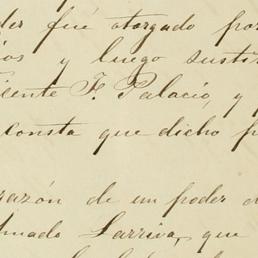 der fué otorgado por
ios y luego susti
icente F. Palacio, y
consta que dicho p
razón de un poder o
mado Larriva, que